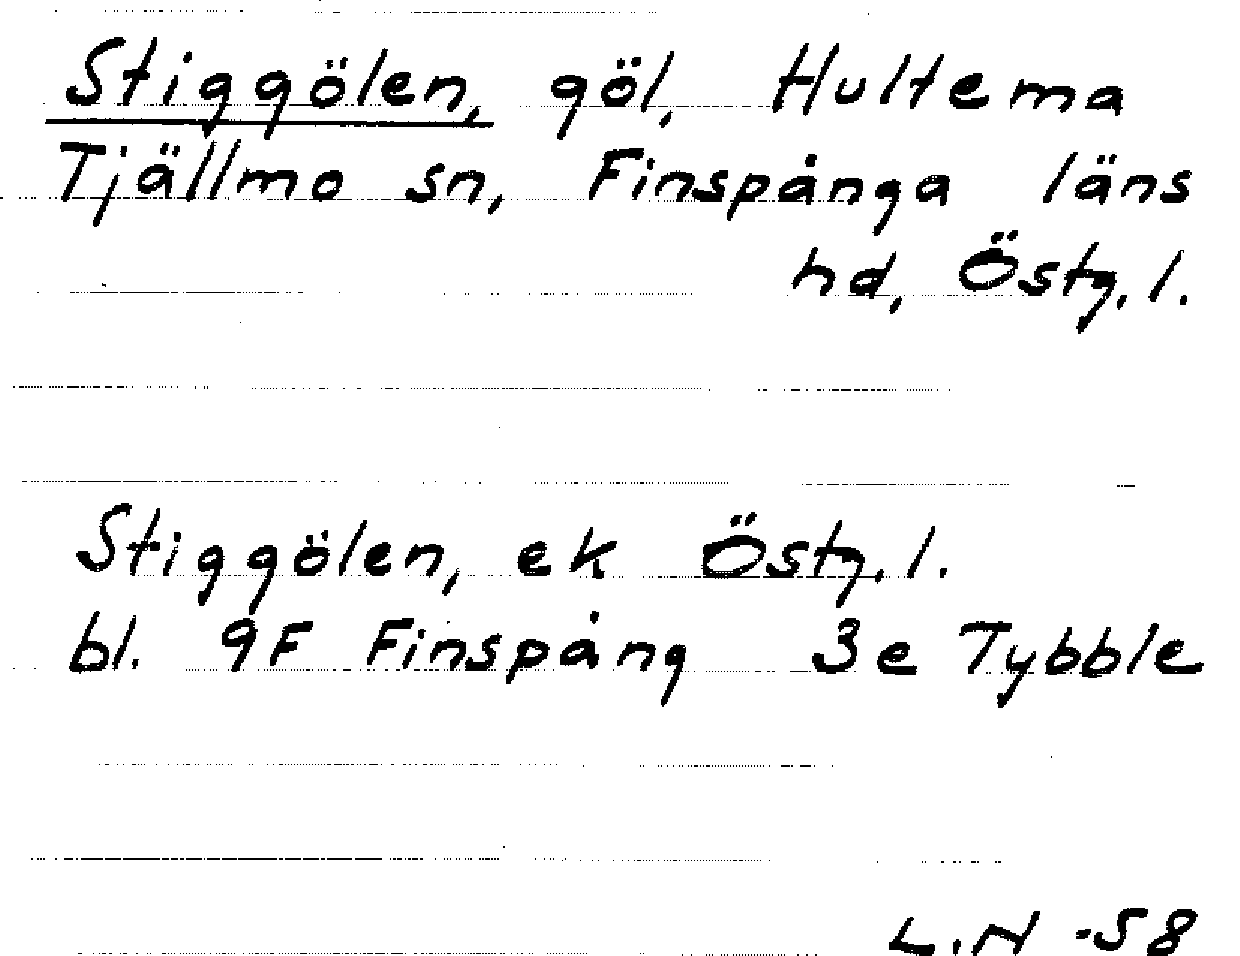 Stiggölen, göl, Hultema
Tjällmo sn, Finspånga läns
hd, Östg. l.
Stiggölen, ek Östg. l.
bl. 9F Finspång 3e Tybble
L.N -58